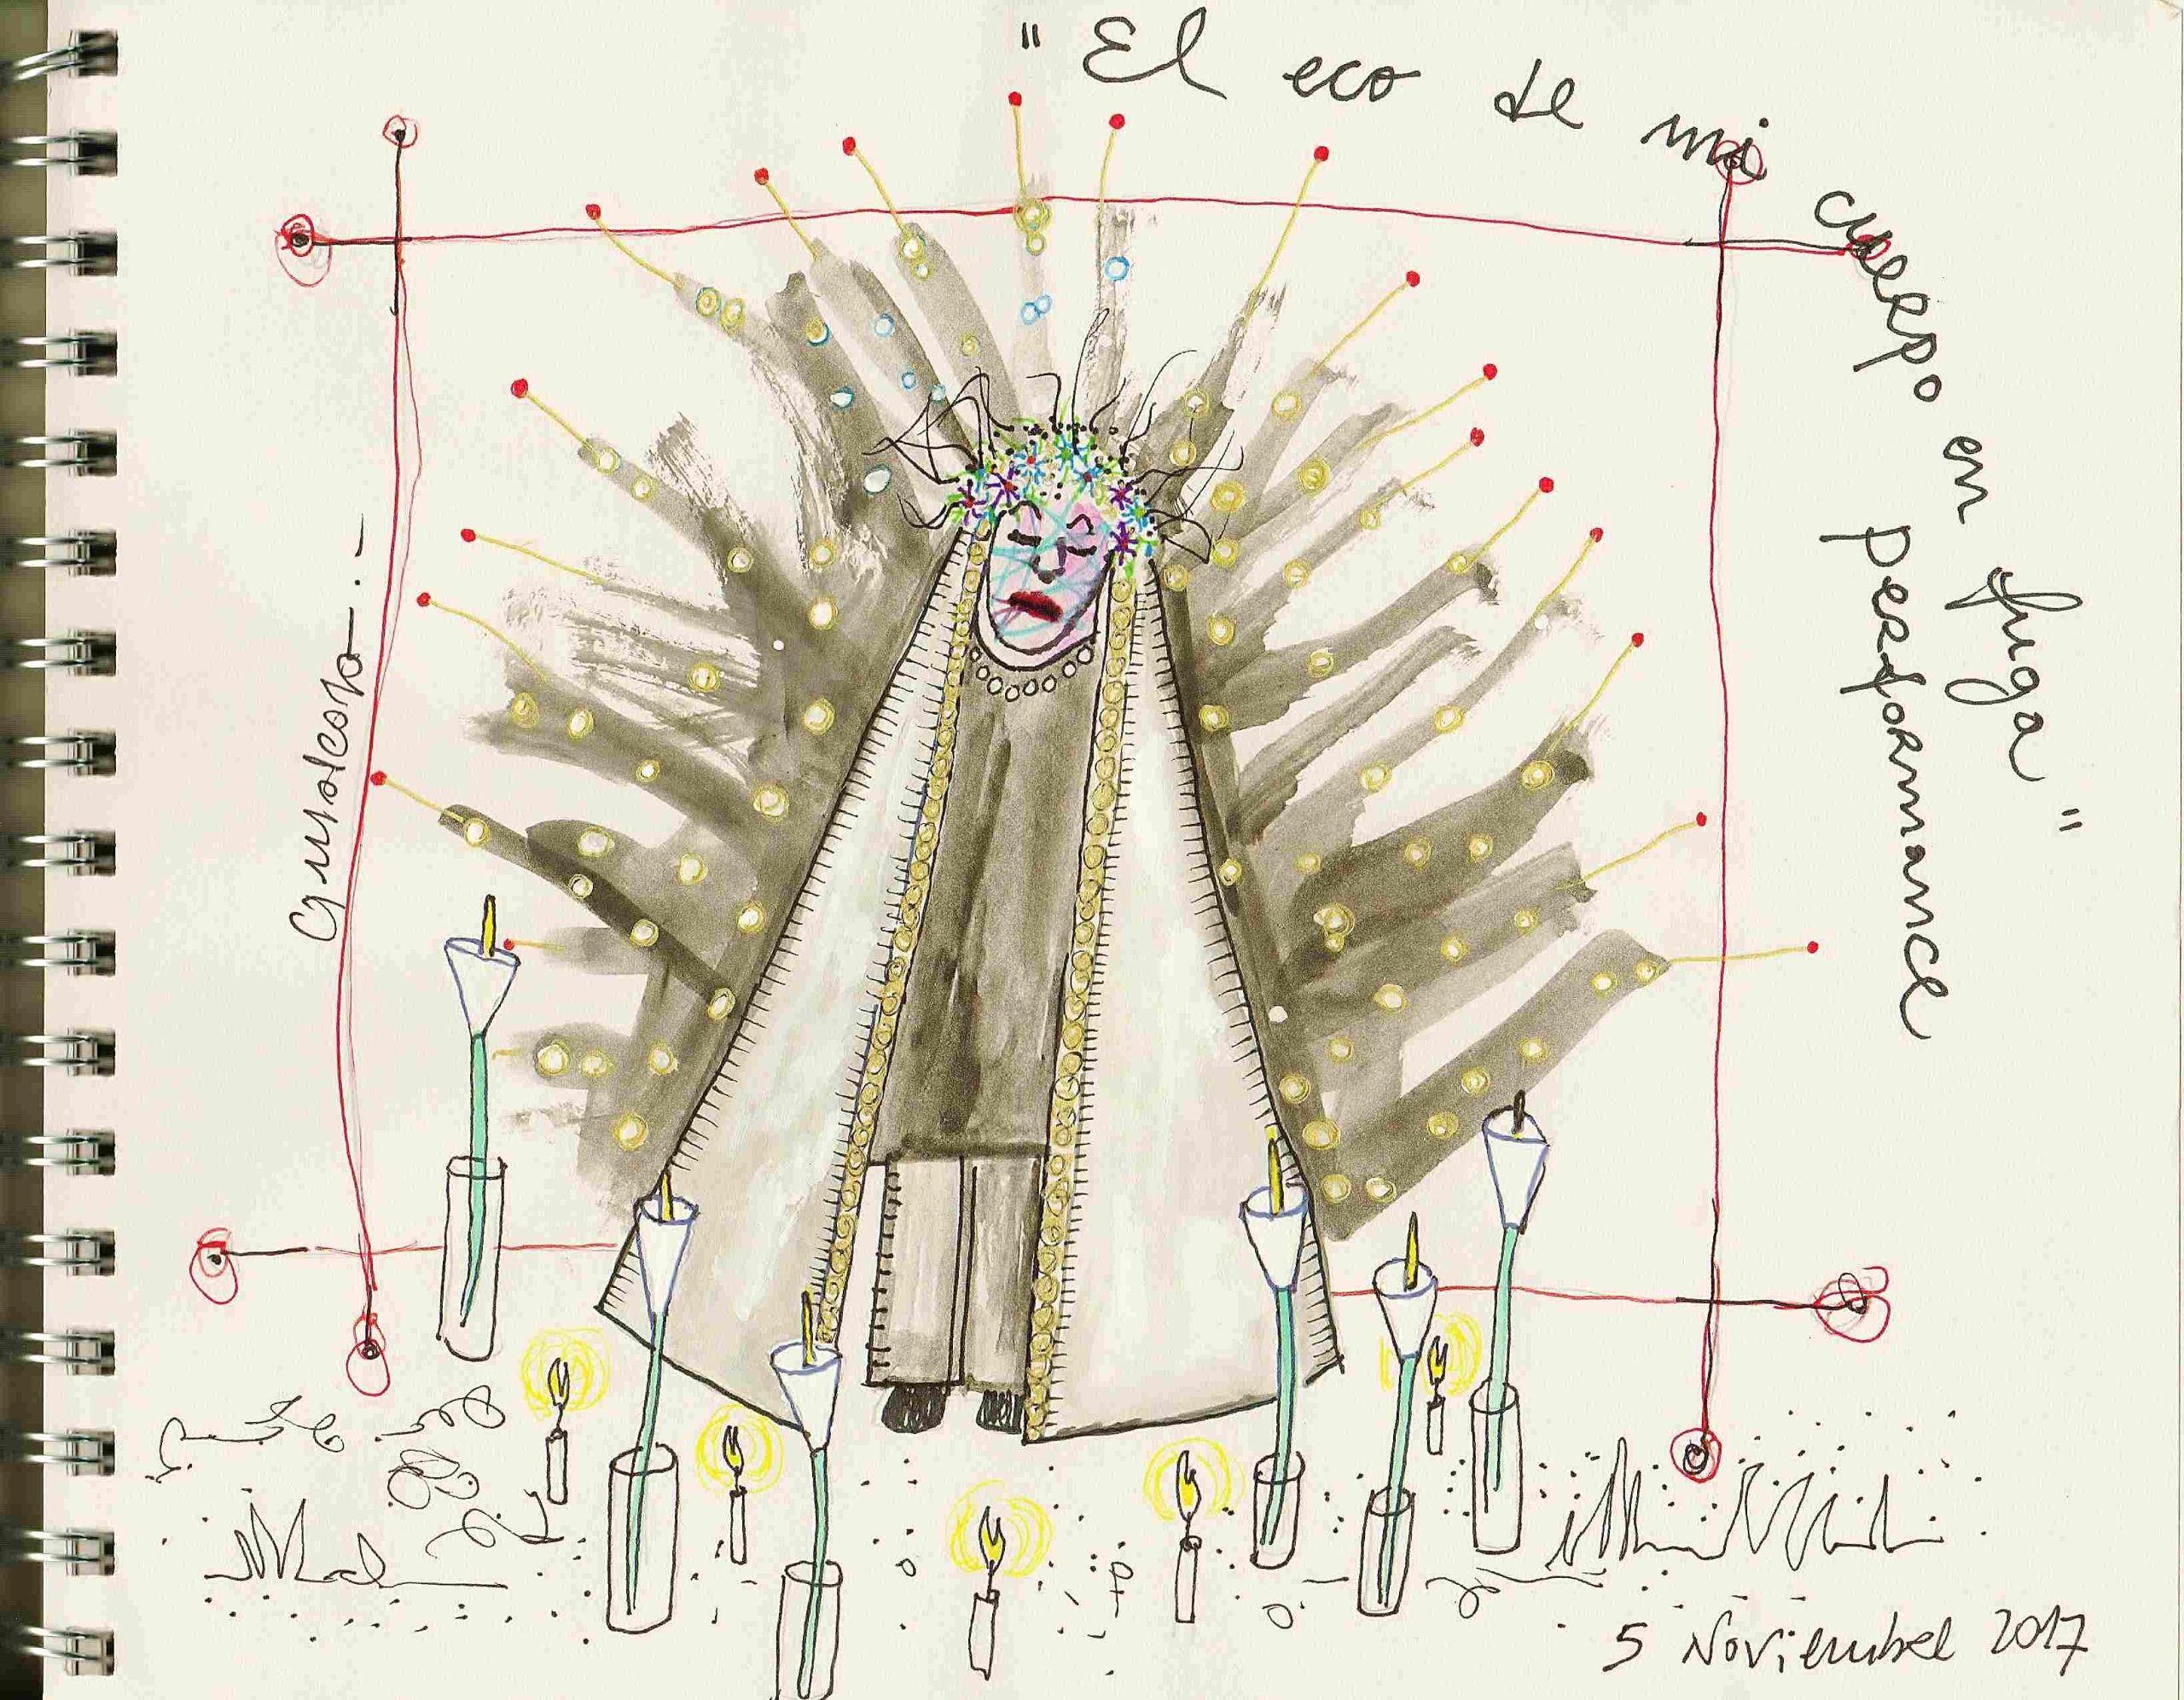 "El eco de mi cuerpo en fuga"
performance
5 Noviembre 2017